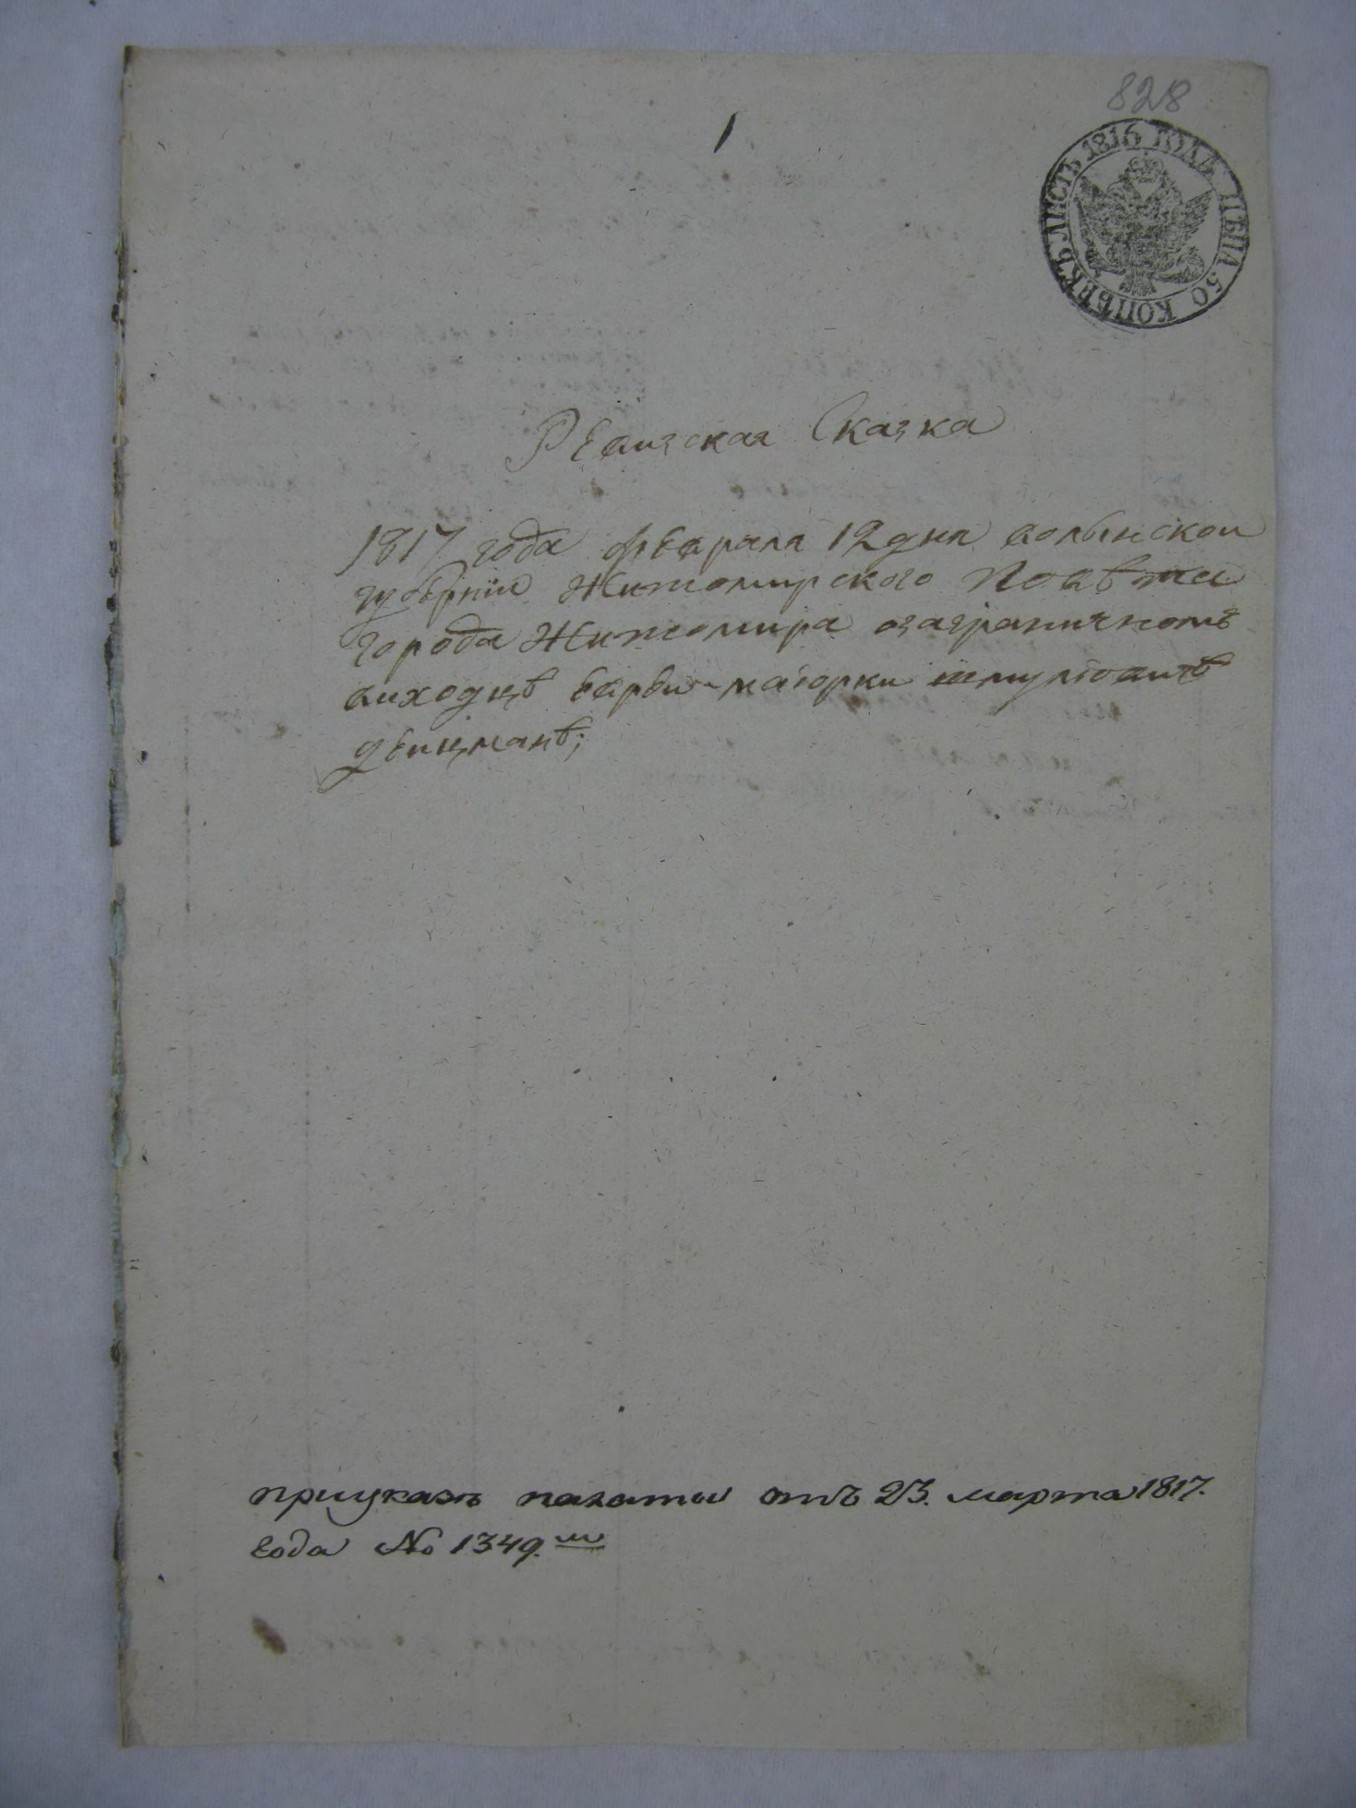 828
1
ЛИСТЪ 1816 ГОДА ЦѢНА 50 КОПѢЕКЪ
Ревизская Сказка
1817 года февраля 12 дня волынской
губернїи Житомирского Повѣта
города Житомира озаграничномъ
виходцѣ
приуказѣ палаты отъ 23. марта 1817.
года № 1349.м